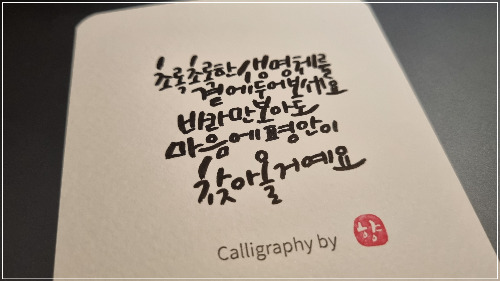 초록초록한 생명체를
곁에 두어보세요
바라만 보아도
마음에 평안이
찾아올거예요
Calligraphy by 향